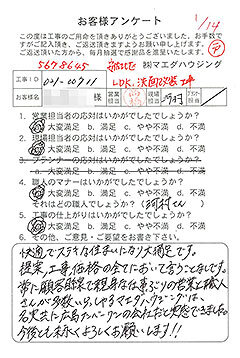 お客様アンケート
1/14
この度は工事のご用命を頂きありがとうございました。お手数で
すがご記入頂き、ご返送頂きますようお願い申し上げます。
ご返送頂いた方から、毎月抽選で粗品を進呈いたします。
5678645
㈱マエダハウジング
工事ID
021-00711
LDK.
お客様名
様
営業
担当
工事
担当
1. 営業担当者の応対はいかがでしたでしょうか?
a. 大変満足 b. 満足 c. やや不満 d. 不満
2. 現場担当者の応対はいかがでしたでしょうか?
a. 大変満足 b. 満足 c. やや不満 d. 不満
3. プランナーの応対はいかがでしたでしょうか?
a. 大変満足 b. 満足 c. やや不満 d. 不満
4. 職人のマナーはいかがでしたでしょうか?
a. 大変満足 b. 満足 c. やや不満 d. 不満
それはどの職人でしょうか?(河村さん)
5. 工事の仕上がりはいかがでしたでしょうか?
a. 大変満足 b. 満足 c. やや不満 d. 不満
6. その他、ご意見・ご要望をお書き下さい。
快適でステキな住まいになり大満足です。
提案、工事、価格の全てにおいて言うことなしです。
常に顧客目線で親身な仕事ぶりの営業と職人
さんが多数いらっしゃるマエダハウジングは、
名実共に広島ナンバーワンの会社だと実感できました。
今後とも末永くよろしくお願いします!!